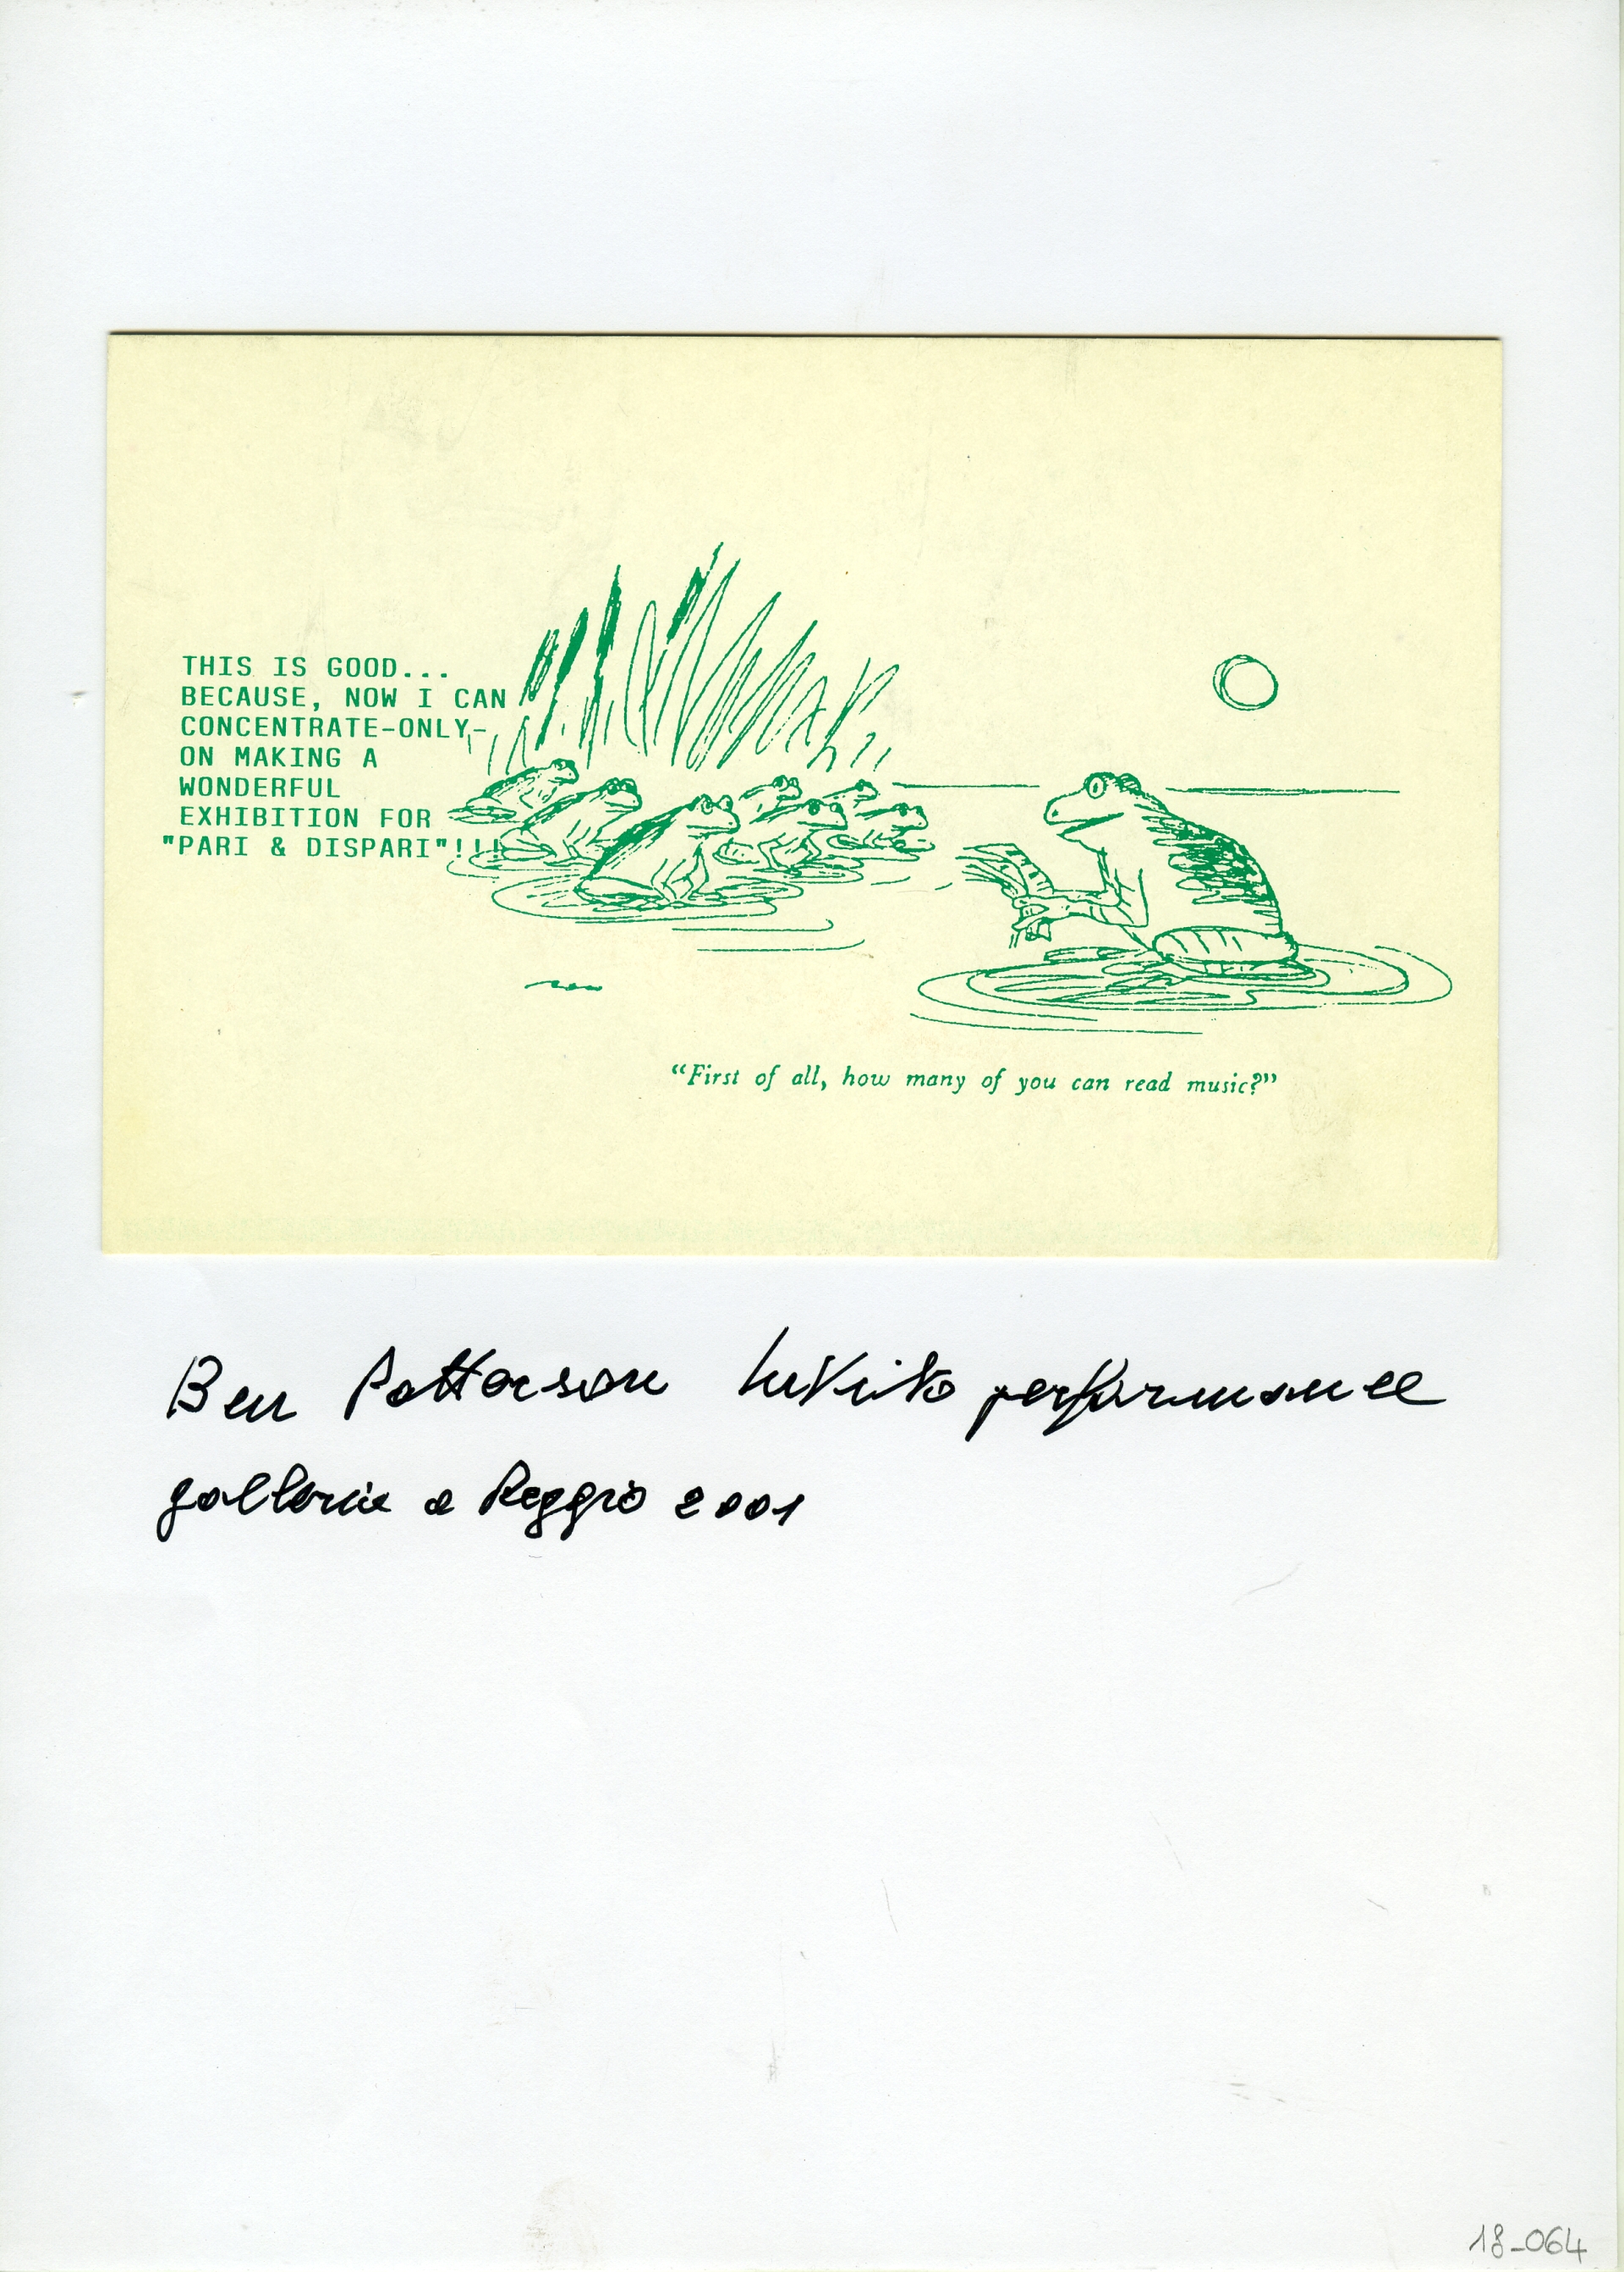 THIS IS GOOD...
BECAUSE, NOW I CAN
CONCENTRATE-ONLY-
ON MAKING A
WONDERFUL
EXHIBITION FOR
"PARI & DISPARI"!!!
“First of all, how many of you can read music?”
Ben Patterson Invito performance
galleria a Reggio 2001
18-064